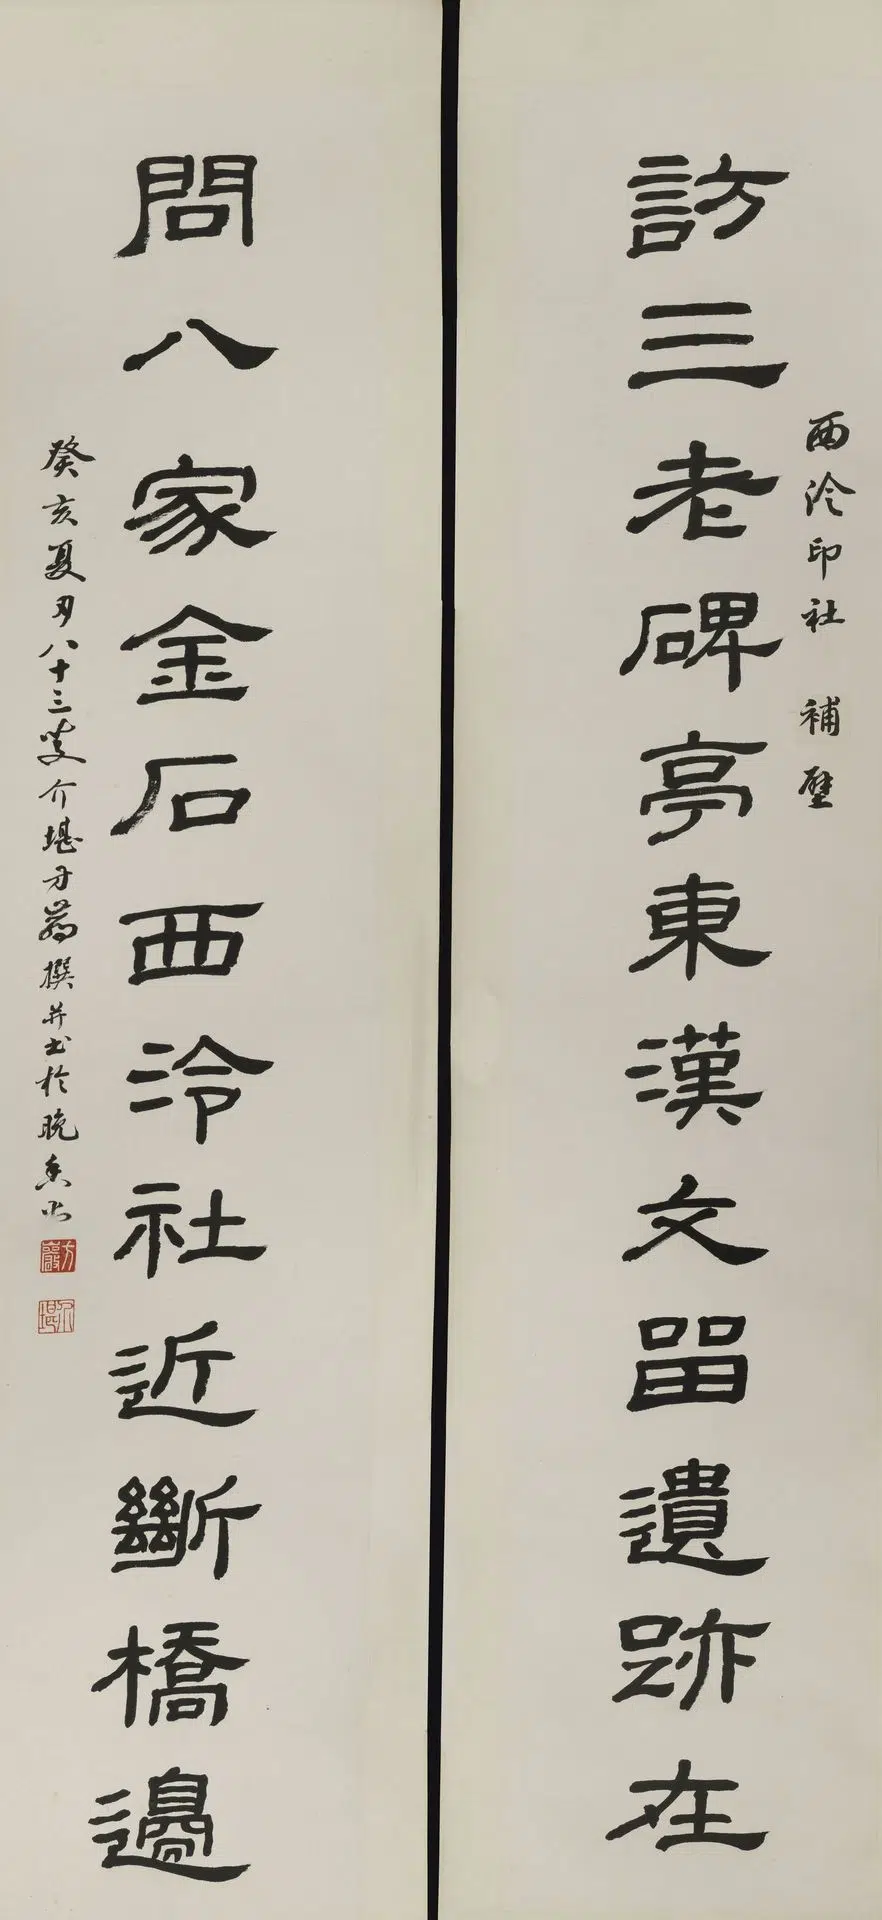 訪三老碑亭東漢文留遺跡在
西泠印社 補壁
問八家金石西泠社近斷橋邊
癸亥夏八十三叟介堪方撰并書於晚香
方巖
介堪